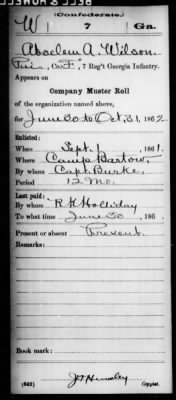 (Confederate.)
W 7 Ga.
A. Wilson.
Co. F, 7 Reg't Georgia Infantry.
Appears on
Company Muster Roll
of the organization named above,
for June 30 to Oct. 31, 1862
Enlisted:
When Sept. 1, 1861.
Where Camp Bartow.
By whom Capt. Burke.
Period 12 Mo.
Last paid:
By whom R. K. Holliday
To what time June 30, 186
Present or absent Present.
Remarks:
Book mark:
(642) Copyist.